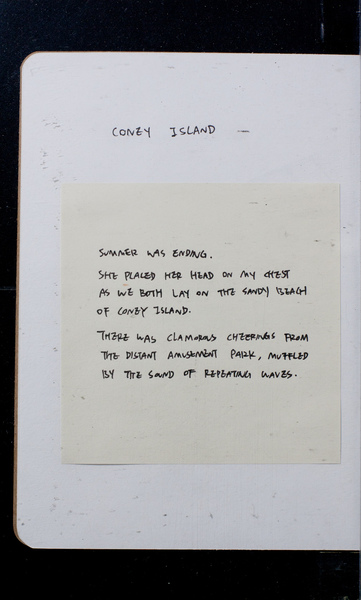 CONEY ISLAND —
SUMMER WAS ENDING.
SHE PLACED HER HEAD ON MY CHEST
AS WE BOTH LAY ON THE SANDY BEACH
OF CONEY ISLAND.
THERE WAS CLAMOROUS CHEERINGS FROM
THE DISTANT AMUSEMENT PARK, MUFFLED
BY THE SOUND OF REPEATING WAVES.